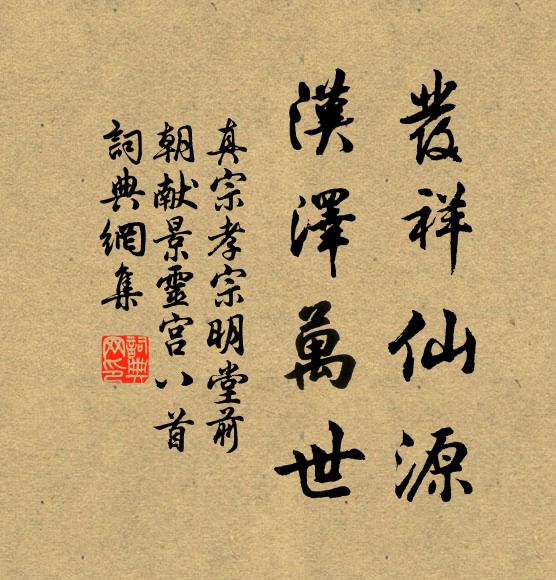 發祥仙源
漢澤萬世
真宗孝宗明堂前
朝献景靈宮八首
詞典網集
詞典
網印